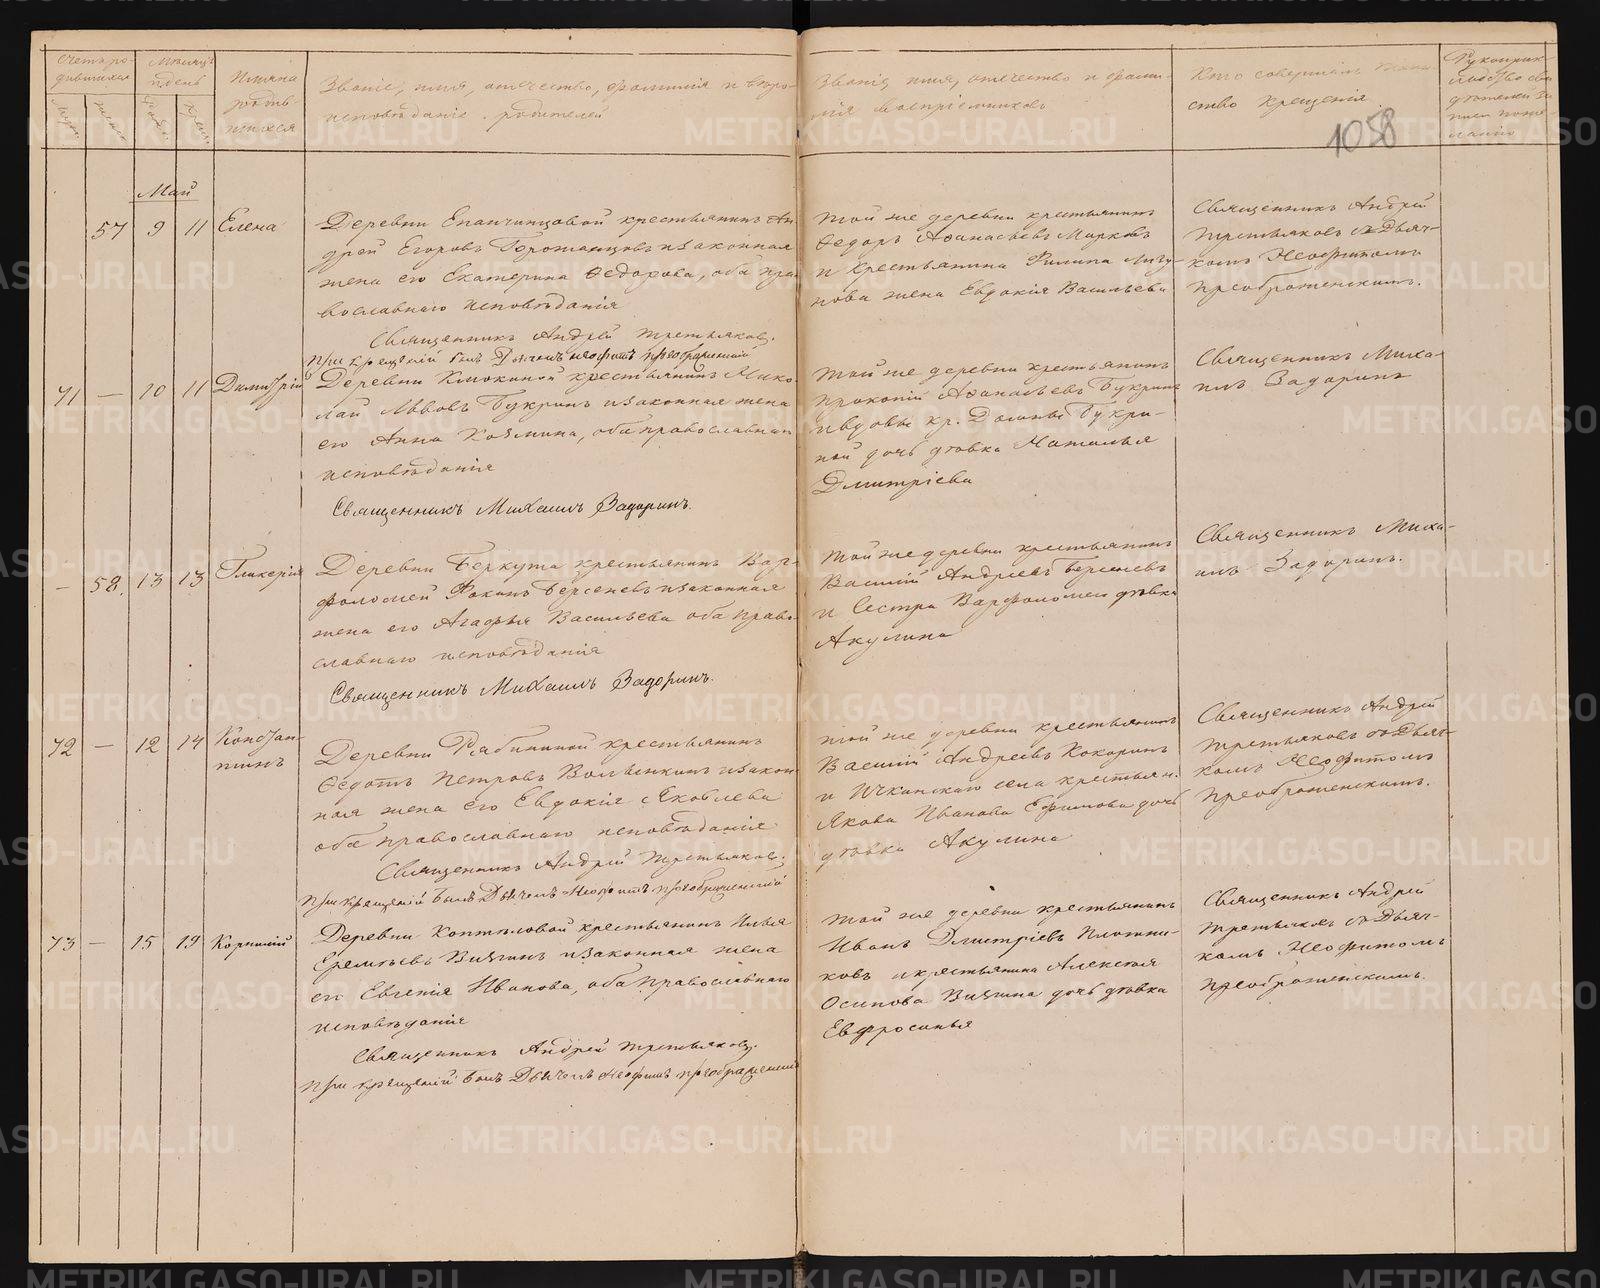 Счетъ ро-
дившихся
Мѣсяцъ
и день
Имяна
родив-
шихся
Званіе, имя, отчество, фамилія и вѣро-
исповѣданіе родителей
Званіе, имя, отчество и фами-
лія воспріемниковъ
Кто совершалъ таин-
ство крещенія
Рукоприк-
ладство сви-
дѣтелей за-
писи по же-
ланію
1058
Май
57 9 11 Елена
Деревни Епанчинцовой крестьянинъ Ан-
дрей Егоровъ и законная
жена его Екатерина Ѳедорова, оба пра-
вославнаго исповѣданія
Священникъ Андрей Третьяковъ.
При крещеніи былъ Дьячекъ Неофитъ Преображенскій
Той же деревни крестьянинъ
Ѳедоръ Аѳанасьевъ Марковъ
и крестьянина Филипа
жена Евдокія Васильева
Священникъ Андрей
Третьяковъ съ Дьяч-
комъ Неофитомъ
Преображенскимъ.
71 — 10 11 Димитрій
Деревни Клюкиной крестьянинъ Нико-
лай Львовъ Букринъ и законная жена
его Анна Козмина, оба православнаго
исповѣданія
Священникъ Михаилъ Задоринъ.
Той же деревни крестьянинъ
Прокопій Аѳанасьевъ Букринъ
и вдовы кр. Букри-
ной дочь дѣвка Наталья
Дмитріева
Священникъ Миха-
илъ Задоринъ
— 58. 13 13 Гликерія
Деревни Беркута крестьянинъ Вар-
фоломей Фокинъ Берсеневъ и законная
жена его Агафья Васильева оба право-
славнаго исповѣданія
Священникъ Михаилъ Задоринъ.
Той же деревни крестьянинъ
Василій Андреевъ Берсеневъ
и Сестра Варфоломея дѣвка
Акулина
Священникъ Миха-
илъ Задоринъ.
72 — 12 14 Констан-
тинъ
Деревни Рябининой крестьянинъ
Ѳедотъ Петровъ Волынкинъ и закон-
ная жена его Евдокія Яковлева
оба православнаго исповѣданія
Священникъ Андрей Третьяковъ.
При крещеніи былъ Дьячекъ Неофитъ Преображенскій
Той же деревни крестьянинъ
Василій Андреевъ Кокоринъ
и Ичкинскаго села крестьян.
Якова Иванова Ефимова дочь
дѣвка Акулина
Священникъ Андрей
Третьяковъ съ Дьяч-
комъ Неофитомъ
Преображенскимъ.
73 — 15 19 Корнилій
Деревни Коптѣловой крестьянинъ Илья
Еремѣевъ Визгинъ и законная жена
его Евгенія Иванова, оба православнаго
исповѣданія
Священникъ Андрей Третьяковъ.
При крещеніи былъ Дьячекъ Неофитъ Преображенскій
Той же деревни крестьянинъ
Иванъ Дмитріевъ Плотни-
ковъ и крестьянина Алексѣя
Осипова Визгина дочь дѣвка
Евфросинья
Священникъ Андрей
Третьяковъ съ Дьяч-
комъ Неофитомъ
Преображенскимъ.
METRIKI.GASO-URAL.RU